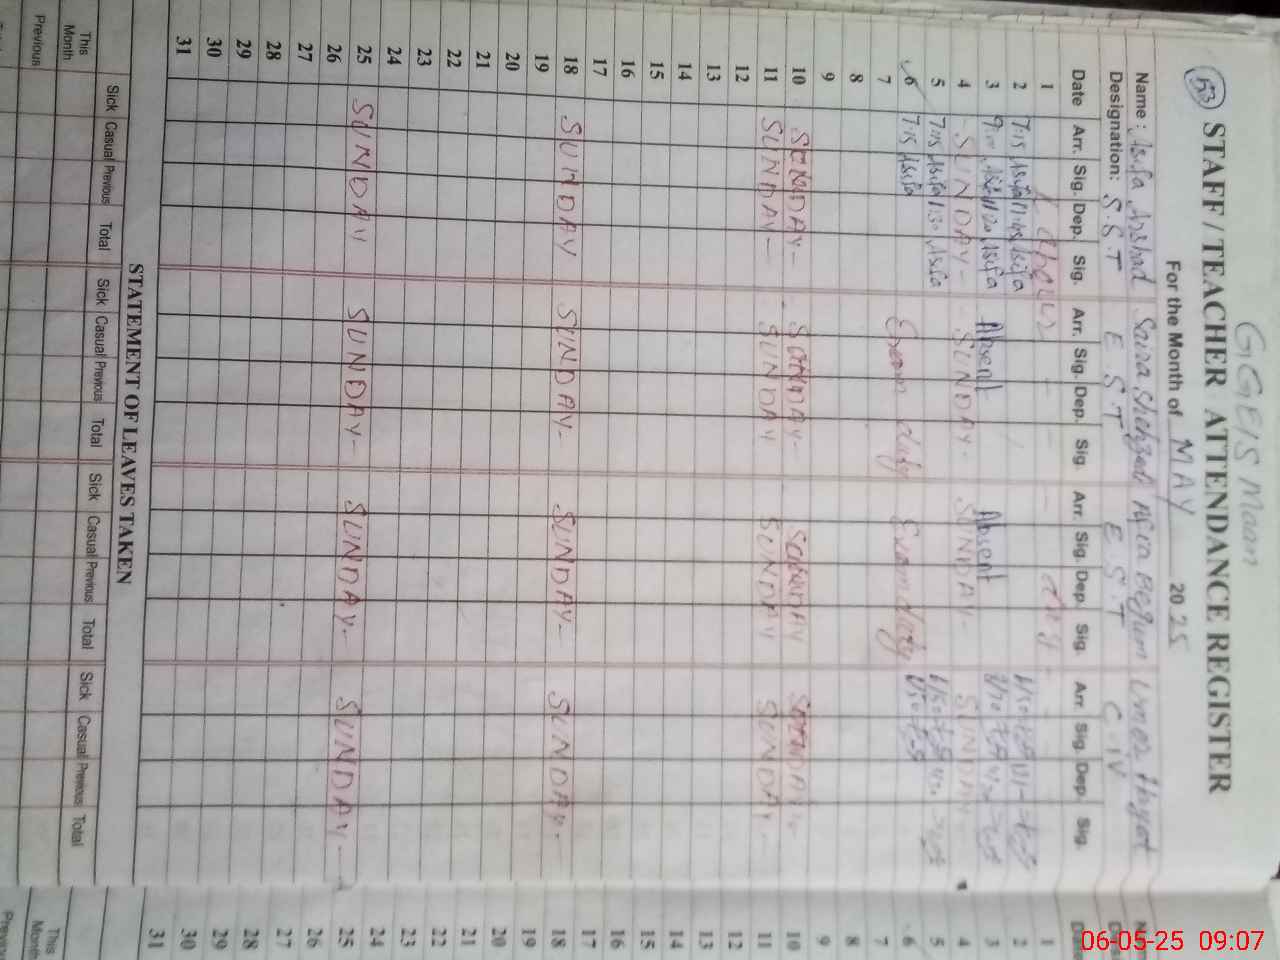 GGEIS Maan
53 STAFF / TEACHER ATTENDANCE REGISTER
For the Month of MAY 2025
Name : Asifa Arshad Saira Shehzadi Afia Begum Umer Hayat
Designation: S.S.T E.S.T E.S.T C-IV
Date Arr. Sig. Dep. Sig. Arr. Sig. Dep. Sig Arr. Sig. Dep. Sig. Arr. Sig. Dep. Sig.
1
2 7:15 Asifa Asifa
3 Asifa Asifa Absent Absent
4 SUNDAY - SUNDAY - SUNDAY - SUNDAY
5 7:15 Asifa 1:30 Asifa
6 7:15 Asifa Exam duty Exam duty
7
8
9
10
11 SUNDAY - SUNDAY SUNDAY SUNDAY -
12
13
14
15
16
17
18 SUNDAY SUNDAY - SUNDAY - SUNDAY -
19
20
21
22
23
24
25 SUNDAY SUNDAY - SUNDAY - SUNDAY -
26
27
28
29
30
31
STATEMENT OF LEAVES TAKEN
Sick Casual Previous Total Sick Casual Previous Total Sick Casual Previous Total Sick Casual Previous Total
This Month
Previous
1
2
3
4
5
6
7
8
9
10
11
12
13
14
15
16
17
18
19
20
21
22
23
24
25
26
27
28
29
30
31
This Month
06-05-25 09:07